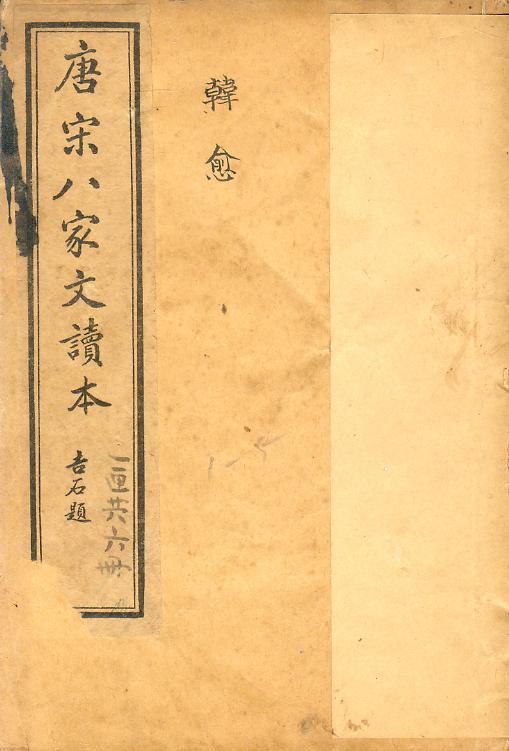 韓愈
唐宋八家文讀本
吉石題
一匣共六冊
1-5